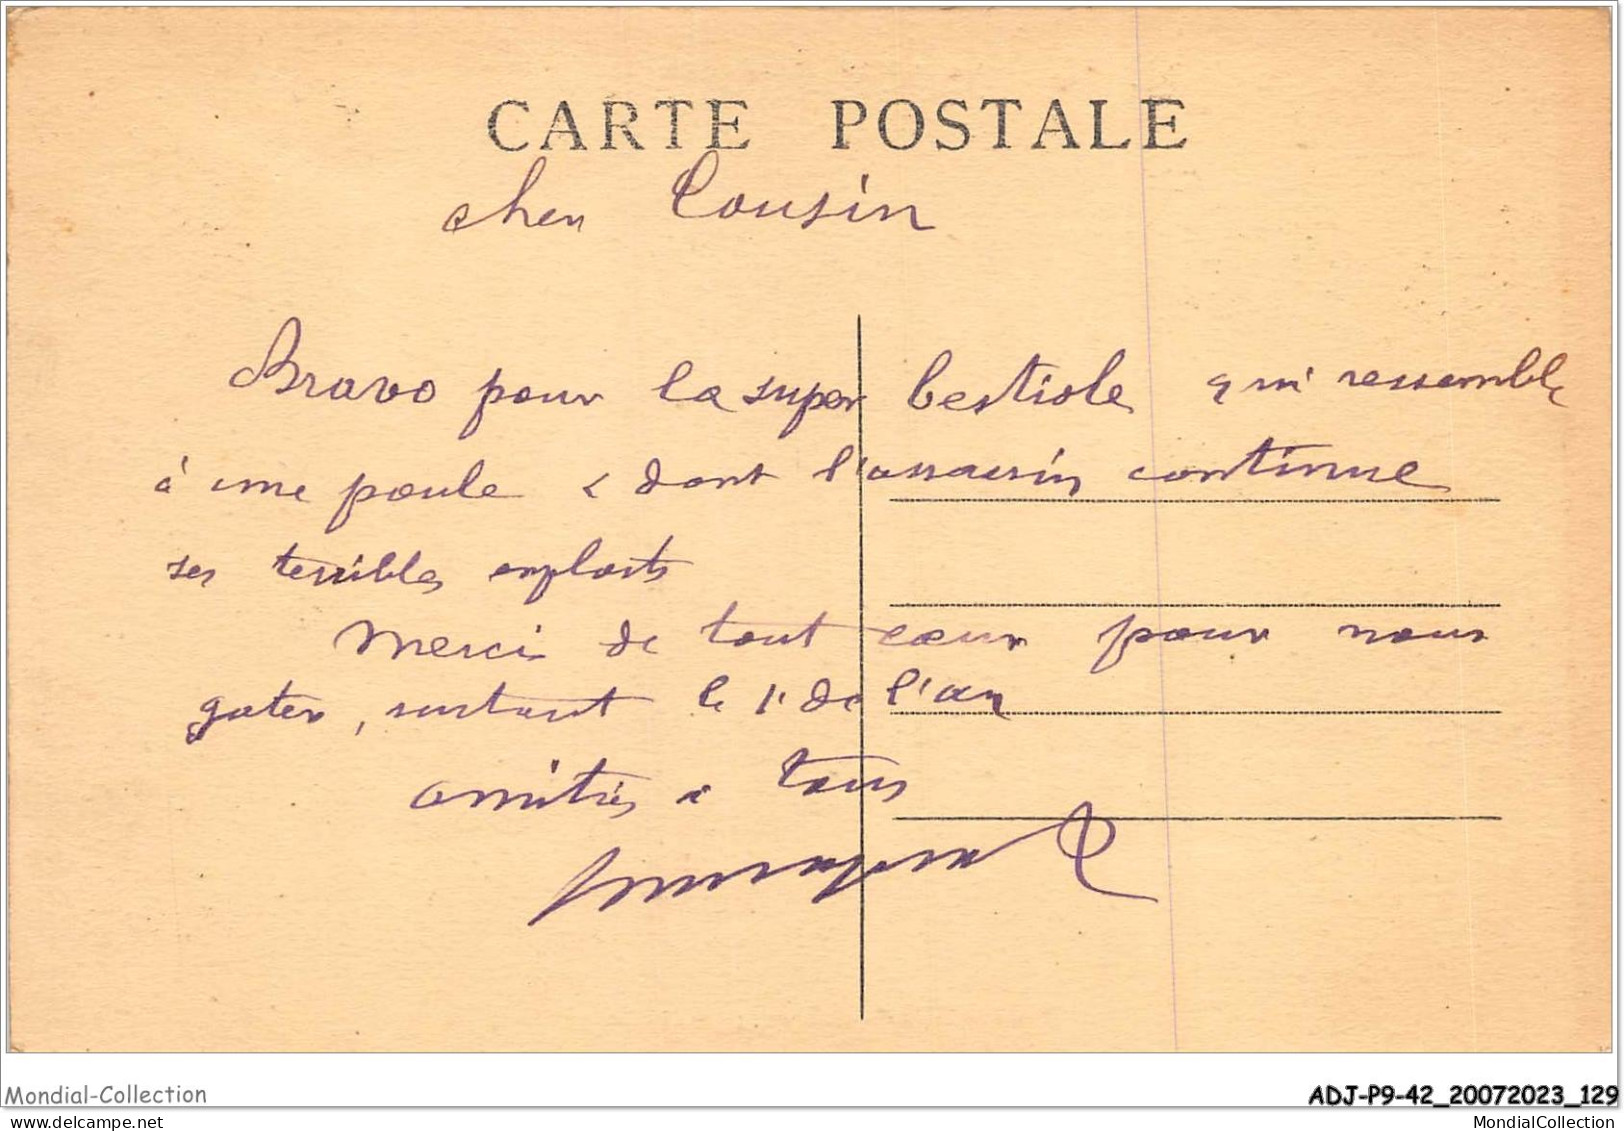 CARTE POSTALE
cher Cousin
Bravo pour la super bestiole qui ressemble
à une poule & dont l'assassin continue
ses terribles exploits
Merci de tout cœur pour nous
gater, surtout le 1r de l'an
amitiés a tous
Mondial-Collection
ADJ-P9-42_20072023_129
MondialCollection
MondialCollection